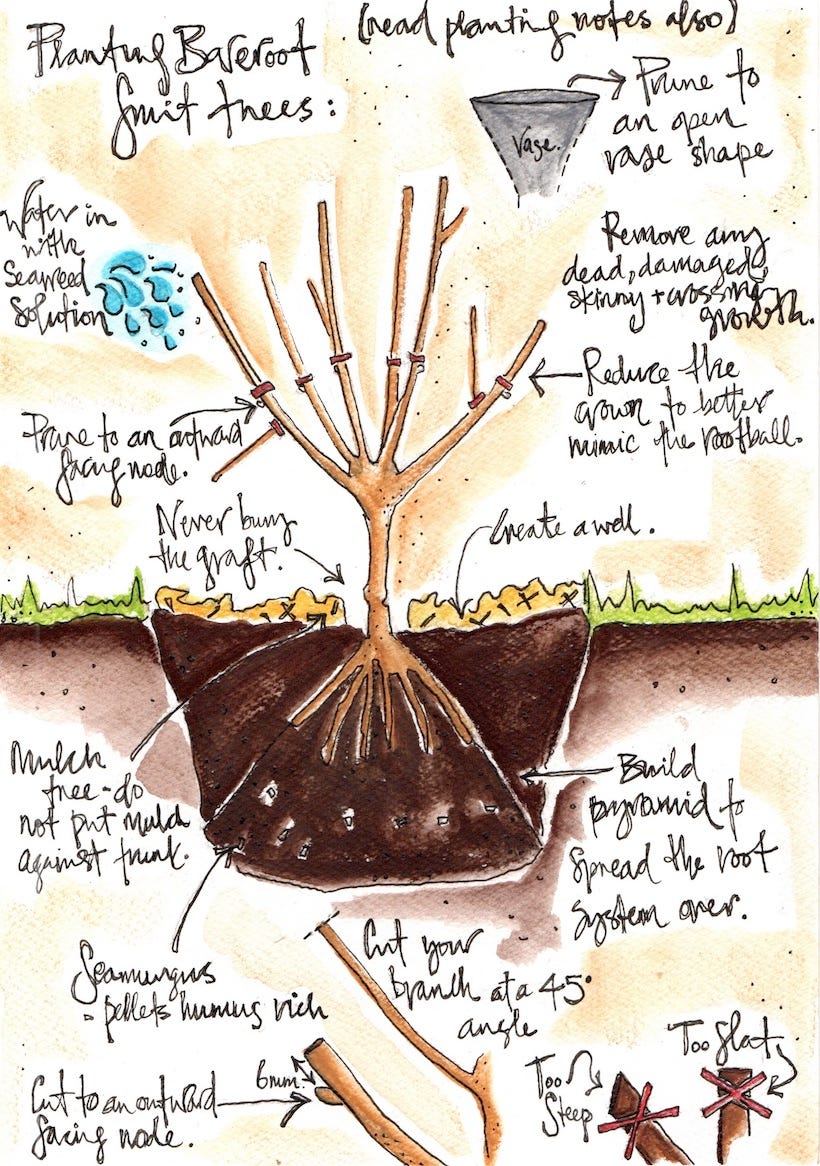 (read planting notes also)
Planting Bareroot
fruit trees:
Vase.
Prune to
an open
vase shape
Water in
with
Seaweed
Solution
Remove any
dead, damaged,
skinny + crossing
growth.
Reduce the
crown to better
mimic the rootball.
Prune to an outward
facing node.
Never bury
the graft.
Create a well.
Mulch
tree - do
not put mulch
against trunk.
Build
pyramid to
spread the root
system over.
Seamungus
- pellets humus rich
Cut your
branch at a 45°
angle
6mm
Cut to an outward
facing node.
Too
Steep
Too flat